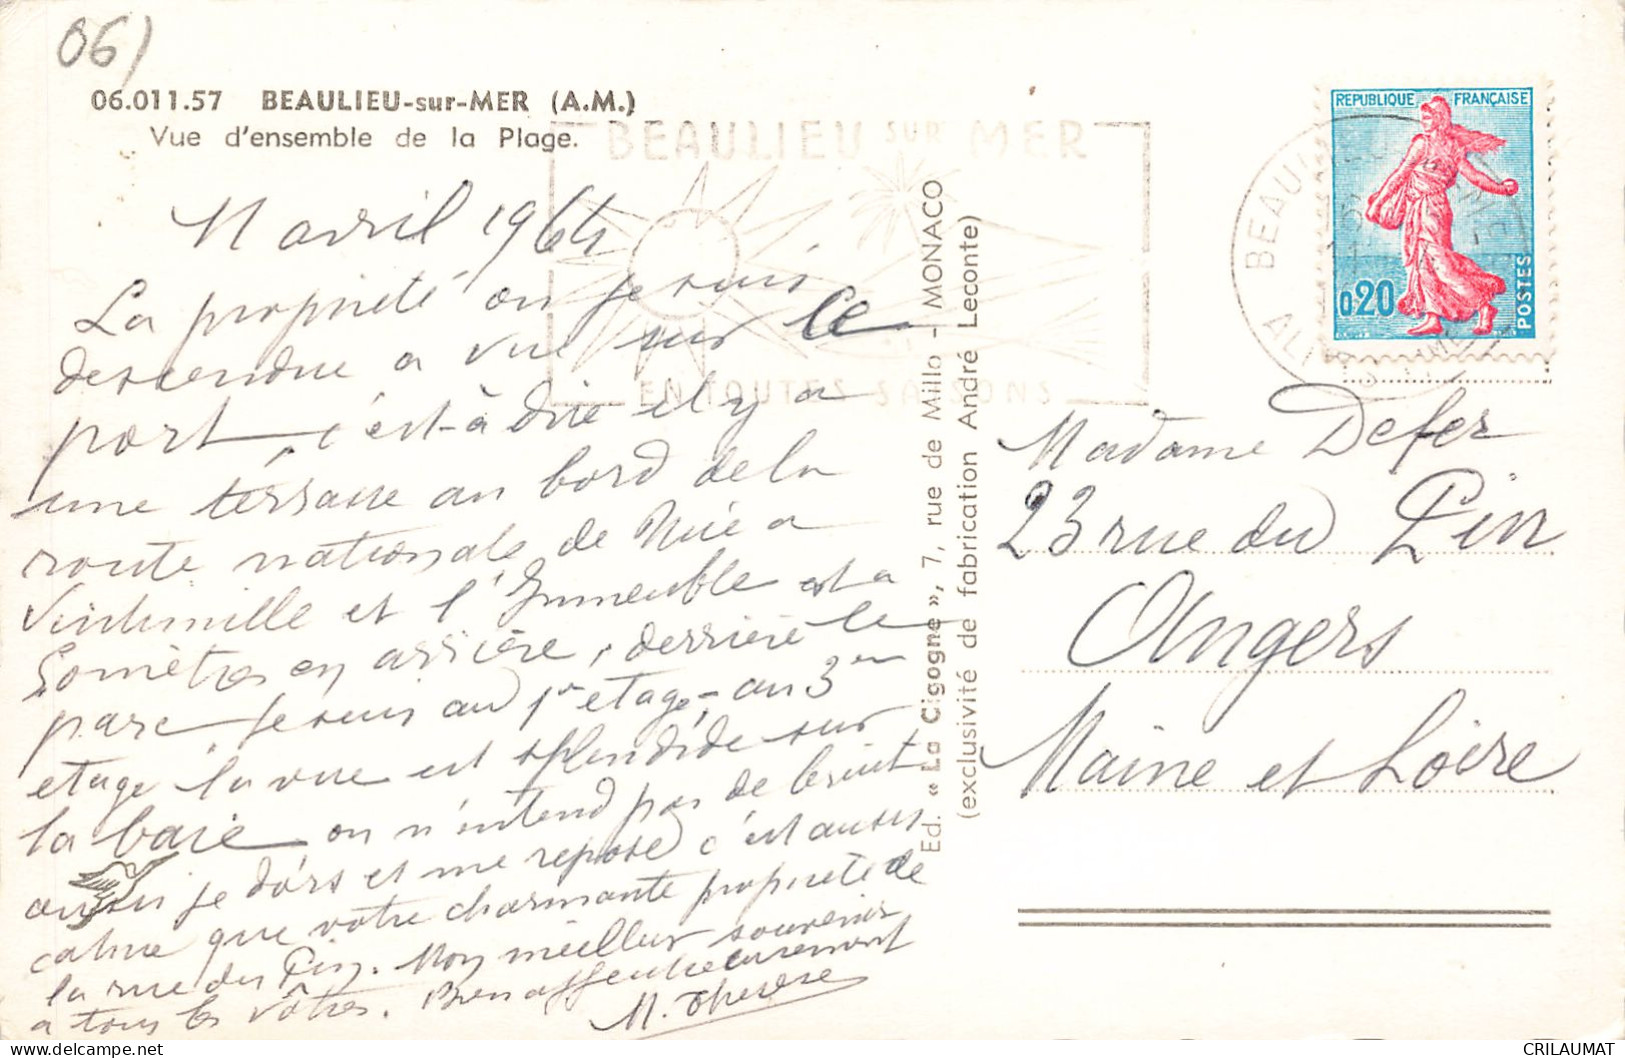 06)
06.011.57 BEAULIEU-sur-MER (A.M.)
Vue d'ensemble de la Plage.
BEAULIEU SUR MER
EN TOUTES SAISONS
REPUBLIQUE FRANÇAISE
0,20
POSTES
BEAUL
11 avril 1964
La proprieté ou je suis
descendue a vue sur le
port, c'est-à dire il y a
une terrasse au bord de la
route nationale de Nice a
Vintimille et l'Immeuble est a
60 mètres en arrière, derrière le
parc. Je suis au 1er etage, au 3em
etage la vue est splendide sur
la baie on n'entend pas de bruit
aussi je dors et me repose c'est aussi
calme que votre charmante proprieté de
la rue du Pin. Mon meilleur souvenir
a tous les vôtres. Bien affectueusement
M. Therese
Ed. « La Cigogne », 7, rue de Millo - MONACO
(exclusivité de fabrication André Leconte)
Madame Defer
23 rue du Pin
Angers
Maine et Loire
CRILAUMAT